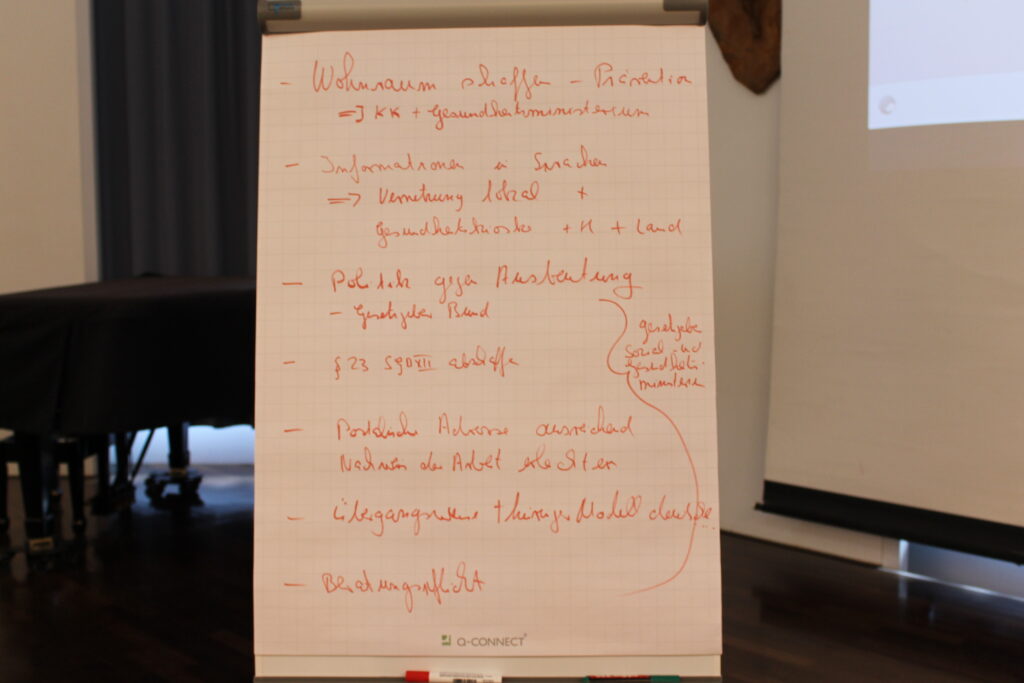 - Wohnraum schaffen - Prävention
=> KK + Gesundheitsministerium
- Informationen in Sprachen
=> Vernetzung lokal +
Gesundheitskioske + H + Land
- Politik gegen Ausbeutung
- Gesetzgeber Bund
- § 23 SGB XII abschaffe
- Postalische Adresse ausreichend
der Arbeit
- Übergangsweise Modell
- Beratungspflicht
gesetzgebe
Sozial und
Gesundheits-
ministerien
Q-CONNECT